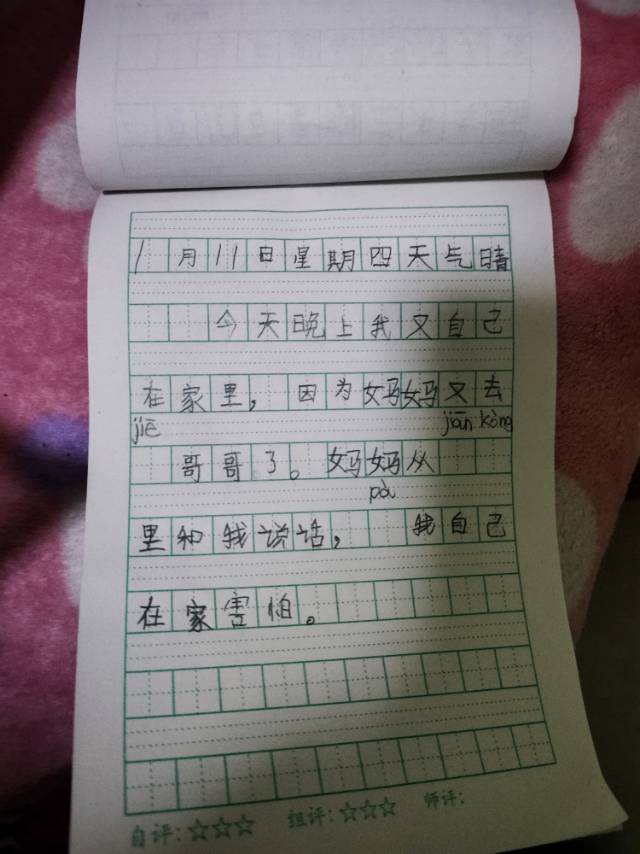 1月11日星期四天气晴
今天晚上我又自己
在家里,因为妈妈又去
jiē jiān kòng
哥哥了。妈妈从
pà
里和我说话,我自己
在家害怕。
自评:☆☆☆ 组评:☆☆☆ 师评: